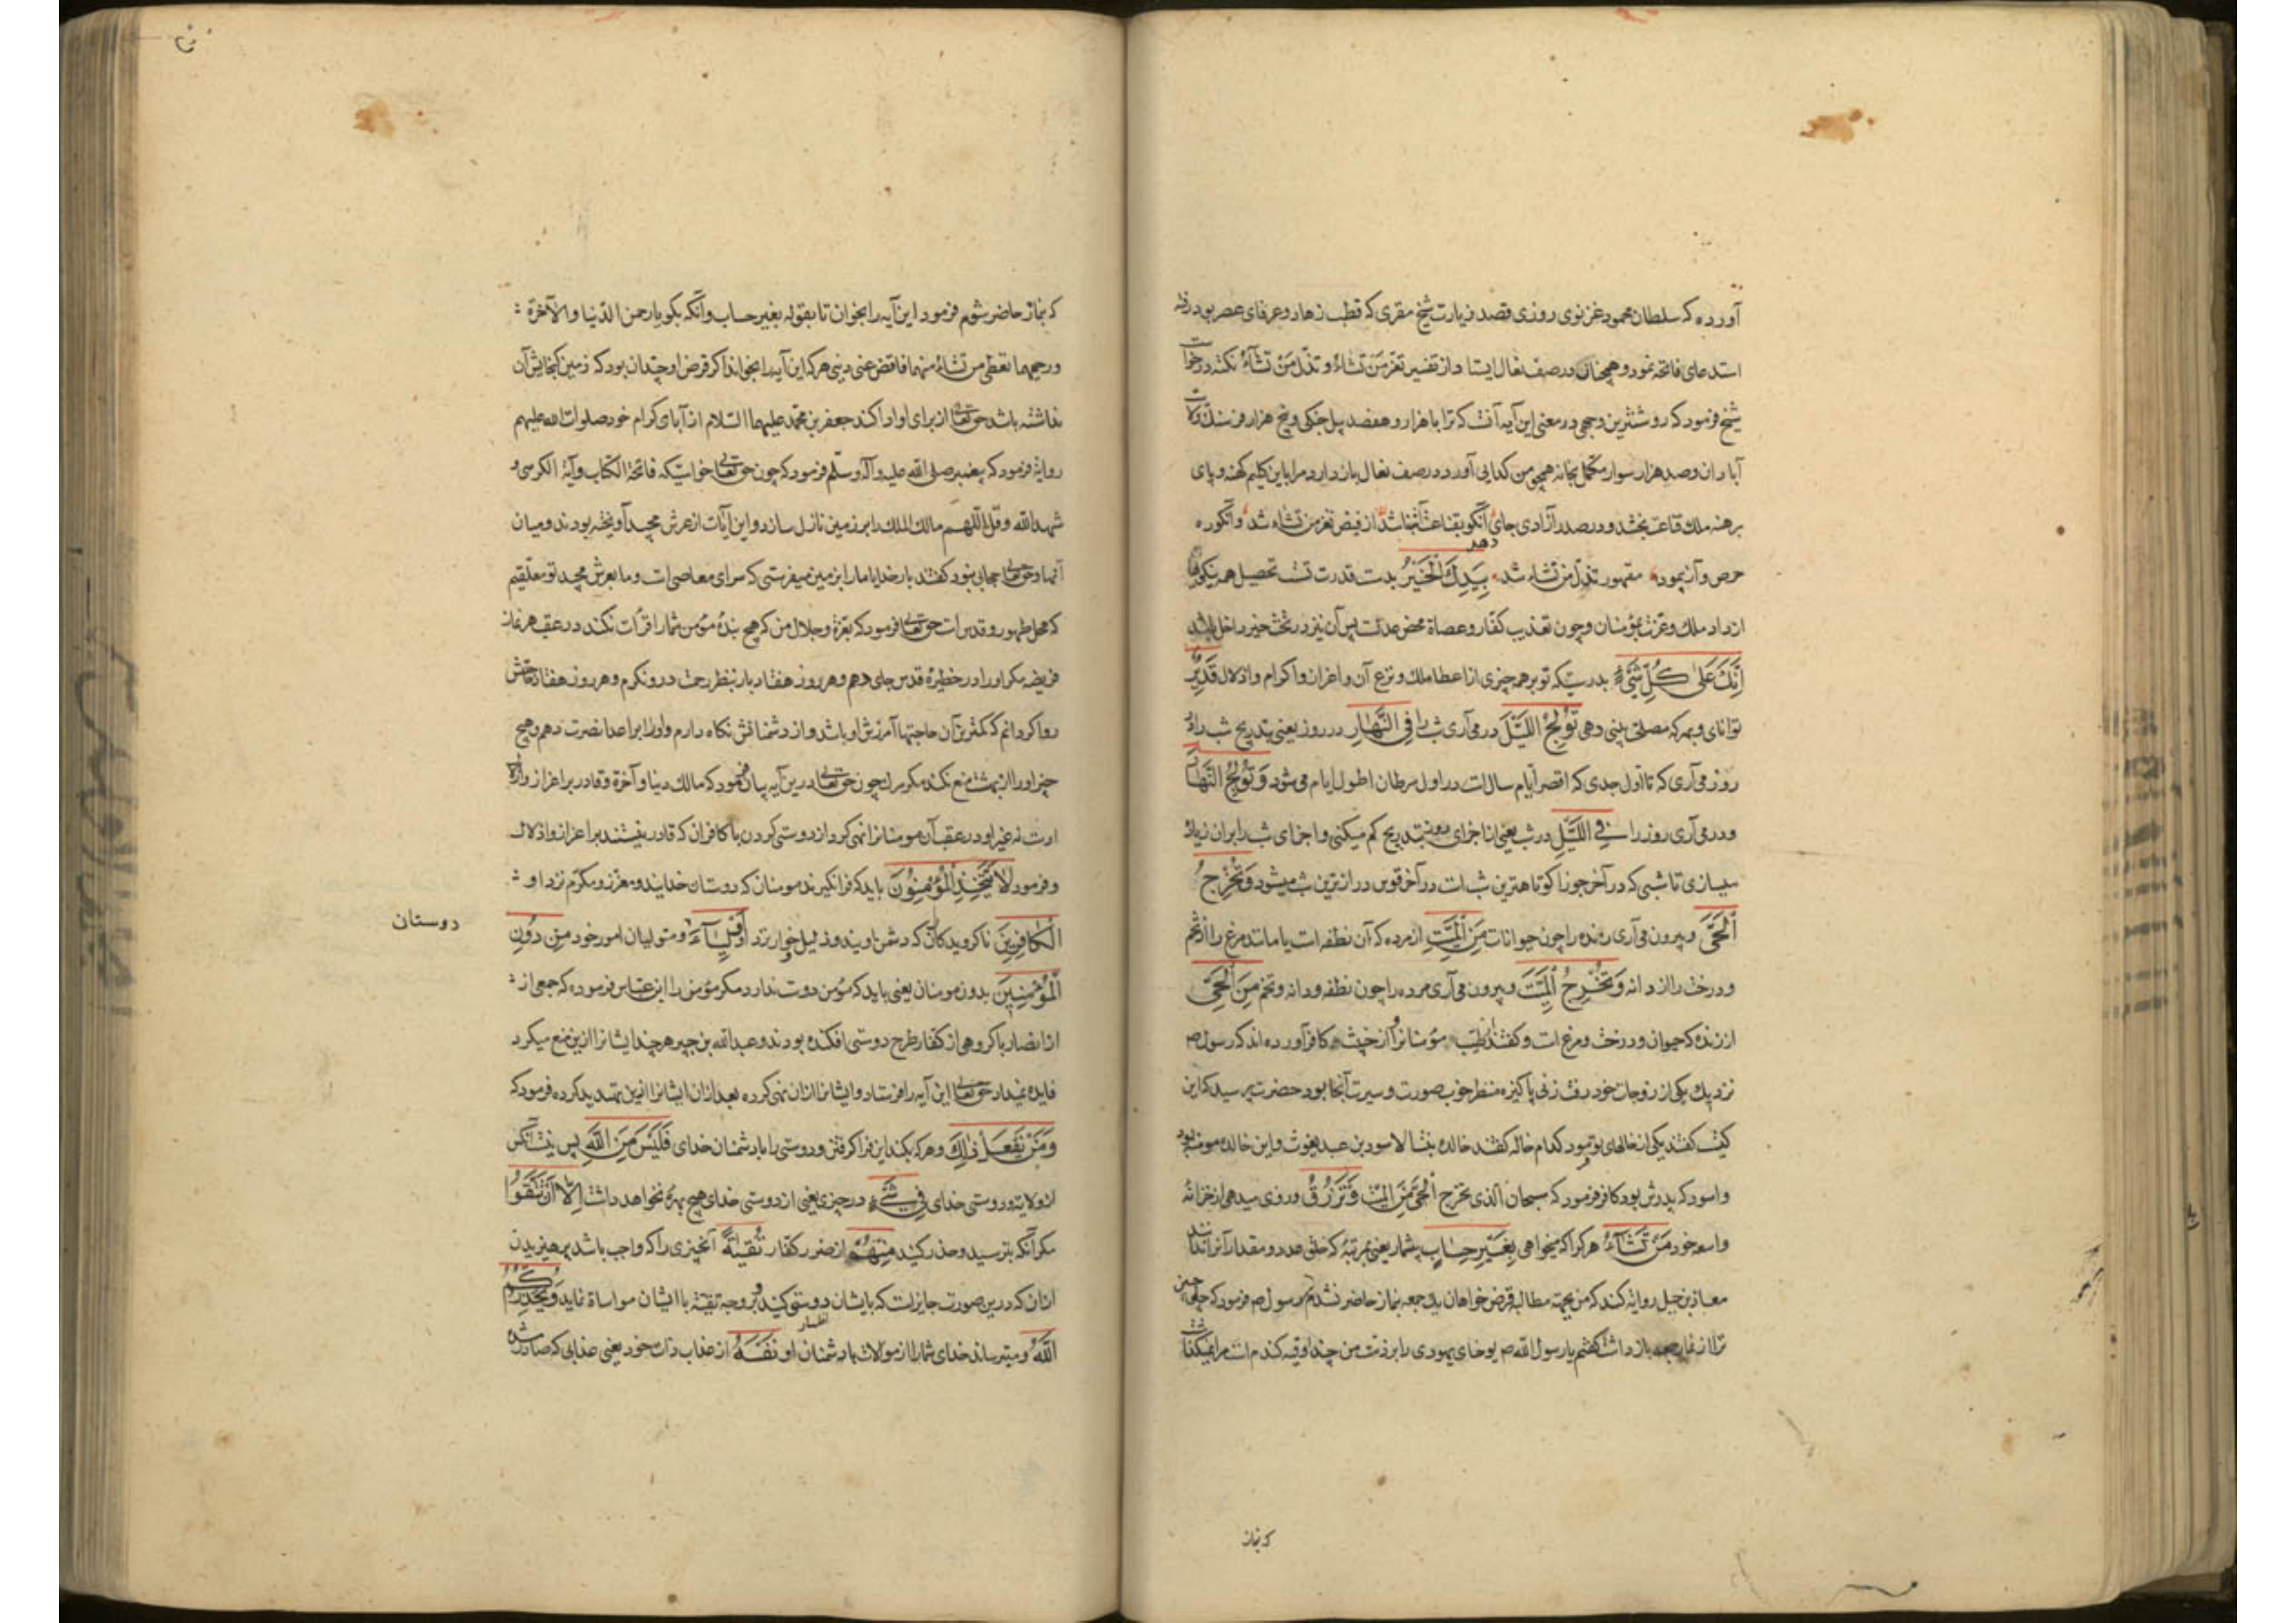 آورده که سلطان محمود غزنوی روزی قصد زیارت شیخ مقری که قطب زهاد و عرفای عصر بود رفته
استدعای فاتحه نمود و همچنان در صف نعال ایستاد از تفسیر تعز من تشاء و تذل من تشآء نکته درخواست
شیخ فرمود که روشنترین وجهی در معنی این آیه آنست که ترا با هزار و هفصد پیل جنکی و پنج هزار فرسنک ولایت
آبادان و صد هزار سوار مکمل بخانه همچو من کدایی آورد در صف نعال بازدارد و مرا باین کلیم کهنه و پای
برهنه ملک قناعت بخشد و در صدر آزادی جای دهد آنکو بقناعت آشنا شد از فیض تعز من تشاء شد وانکو ره
حرص و آز پیمود مقهور تذل من تشاء شد بِیَدِكَ الْخَیْرُ بدست قدرت تست تحصیل همه نیکوییها
از داد ملک و عزت بمؤمنان و چون تعذیب کفار و عصاة محض عدلست پس آن نیز در تحت خیر داخل باشد
اِنَّكَ عَلیٰ كُلِّ شَیْءٍ بدرستیکه تو بر همه چیزی از اعطا ملک و نزع آن و اعزاز و اکرام و اذلال قَدِیرٌ
توانای و بهر که مصلحت بینی دهی تُولِجُ اللَّیْلَ در می آری شب را فِی النَّهَارِ در روز یعنی بتدریج شب را در
روز می آری که تا اول جدی که اقصر ایام سالست در اول سرطان اطول ایام می شود وَتُولِجُ النَّهَارَ
و در می آری روز را فِی اللَّیْلِ در شب یعنی از اجزای روز بتدریج کم میکنی و اجزای شب را بران زیاده
میسازی تا شبی که در آخر جوزا کوتاهترین شبست در آخر قوس درازترین شب میشود وَتُخْرِجُ
الْحَیَّ و بیرون می آری زنده را چون حیوانات مِنَ الْمَیِّتِ از مرده که آن نطفه است یا مانند مرغ را از تخم
و درخت را از دانه وَتُخْرِجُ الْمَیِّتَ و بیرون می آری مرده را چون نطفه و دانه و تخم مِنَ الْحَیِّ
از زنده که حیوان و درخت و مرغ است و کفته اند طیب از خبیث و مؤمن از کافر آورده اند که رسول ص
نزدیک یکی از زوجات خود رفت زنی پاکیزه منظر خوب صورت و سیرت آنجا بود حضرت پرسید که این
کیست کفتند یکی از خالهای تو فرمود کدام خاله کفتند خالده بنت الاسود بن عبد یغوث و این خالده مومنه بود
و اسود که پدرش بود کافر فرمود که سبحان الذی یخرج الحی من المیت وَتَرْزُقُ و روزی میدهی از خزانه
واسعه خود مَنْ تَشَآءُ هر کرا که میخواهی بِغَیْرِ حِسَابٍ بیشمار یعنی بمرتبه که خلق عدد و مقدار آنرا ندانند
معاذ بن جبل روایة کند که من بجهة مطالبه قرض خواهان روز جمعه بنماز حاضر نشدم رسول ص فرمود که چه چیز
ترا از نماز جمعه بازداشت کفتم یا رسول الله ص یوحنای یهودی را بر ذمت من چند اوقیه کندم است مرا نمیکذاشت
که بنماز
که بنماز حاضر شوم فرمود این آیه را بخوان تا بقوله بغیر حساب وانکه بکو یا رحمن الدنیا والآخرة
ورحیمهما تعطی من تشاء منهما فاقض عنی دینی هر که این آیه را بخواند اکر قرض او چندان بود که زمین کنجایش آن
نداشته باشد حق تعالی از برای او ادا کند جعفر بن محمد علیهما السلام از آبای کرام خود صلوات الله علیهم
روایة فرمود که پیغمبر صلی الله علیه وآله وسلم فرمود که چون حق تعالی خواست که فاتحة الکتاب و آیة الکرسی و
شهد الله و قل اللهم مالك الملك را بر زمین نازل سازد و این آیات از عرش مجید آویخته بودند و میان
آنها و حق تعالی حجابی نبود کفتند بار خدایا ما را بزمین میفرستی که سرای معاصی است و ما بعرش مجید تو معلقیم
که محل طهور و قدس است حق تعالی فرمود که بعزة و جلال من که هیچ بندهٔ مؤمن شما را قرأت نکند در عقب هر نماز
فریضه مکر او را در خطیرهٔ قدس جای دهم و هر روز هفتاد بار بنظر رحمت درو نکرم و هر روز هفتاد حاجتش
روا کردانم که کمترین آن حاجتها آمرزش او باشد و از دشمنانش نکاه دارم و او را بر اعدا نصرت دهم و هیچ
چیز او را از بهشت منع نکند مکر مرک چون حق تعالی درین آیه بیان فرمود که مالک دنیا و آخرة و قادر بر اعزاز و اذلال
اوست نه غیر او در عقب آن مومنانرا نهی کرد از دوستی کردن با کافران که قادر نیستند بر اعزاز و اذلال
و فرمود لَا یَتَّخِذِ الْمُؤْمِنُونَ باید که فرا نکیرند مومنان که دوستان خدایند و معزز و مکرم نزد او
الْكَافِرِینَ ناکرویدکانرا که دشمن اویند و ذلیل و خوار نزد او اَوْلِیَآءَ و متولیان امور خود مِنْ دُونِ
دوستان
الْمُؤْمِنِینَ بدون مومنان یعنی باید که مؤمن دوست ندارد مکر مؤمن را ابن عباس فرموده که جمعی از
از انصار با کروهی از کفار طرح دوستی افکنده بودند و عبدالله بن جبیر هر چند ایشانرا ازین منع میکرد
فایده نمیداد حق تعالی این آیه را فرستاد و ایشانرا ازان نهی کرده بعد ازان ایشانرا ازین تهدید کرده فرمود که
وَمَنْ یَفْعَلْ ذٰلِكَ و هر که بکند این فرا کرفتن و دوستی را با دشمنان خدای فَلَیْسَ مِنَ اللّٰهِ پس نیست آنکس
از ولایة و دوستی خدای فِی شَیْءٍ در چیزی یعنی از دوستی خدای هیچ بهرهٔ نخواهد داشت اِلَّا اَنْ تَتَّقُوا
مکر آنکه بترسید و حذر کنید مِنْهُمْ از ضرر کفار تُقٰیةً آنچیزی را که واجب باشد پرهیزیدن
ازان که درین صورت جایزست که بایشان دوستی کنید و بر وجه تقیه با ایشان مواساة نمایید وَیُحَذِّرُكُمُ
اللّٰهُ و میترساند خدای شما را از موالات با دشمنان او نَفْسَهُ از عذاب ذات خود یعنی عذابی که صادر شده